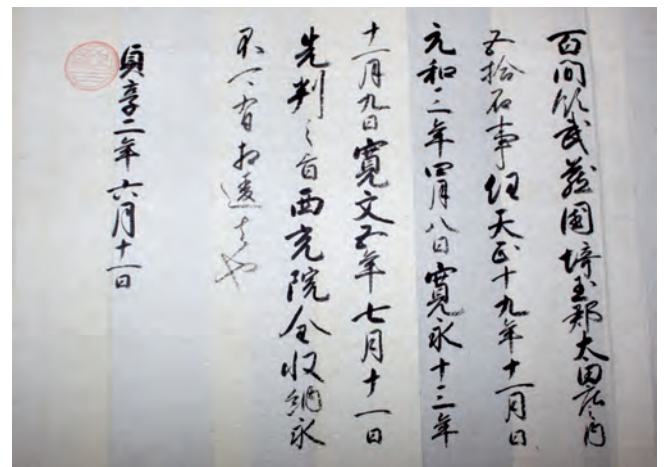 百間領武蔵国埼玉郡太田庄内
五拾石事任天正十九年十一月日
元和三年四月八日寛永十三年
十一月九日寛文五年七月十一日
先判之旨西光院全収納永
不可有相違者也
貞享二年六月十一日